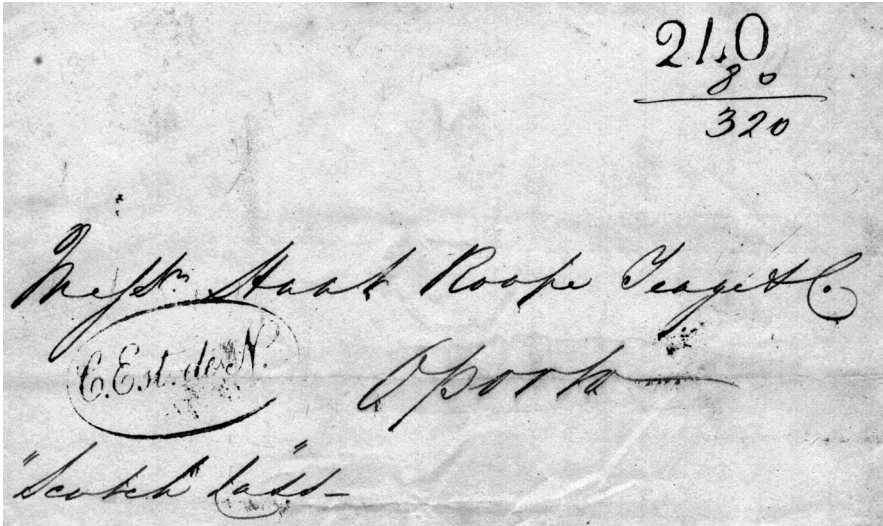 240
80
320
Messrs Hunt Roope Teage & C.
C. Est. de N.
Oporto
"Scotch Lass"